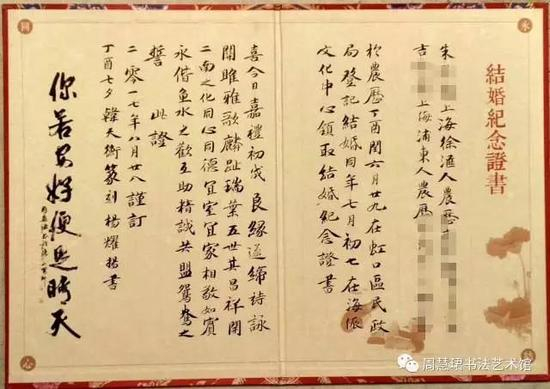 永
結婚紀念證書
朱 上海徐滙人農歷
吉 上海浦東人農歷
於農歷丁酉閏六月廿九在虹口區民政
局登記結婚同年七月初七在海派
文化中心領取結婚紀念證書
同
喜今日嘉禮初成良緣遂締詩詠
關雎雅歌麟趾瑞葉五世其昌祥開
二南之化同心同德宜室宜家相敬如賓
永偕魚水之歡互助精誠共盟鴛鴦之
誓 此證
二零一七年八月廿八謹訂
丁酉七夕韓天衡篆刻楊耀揚書
你若安好便是晴天
心
周慧珺书法艺术馆